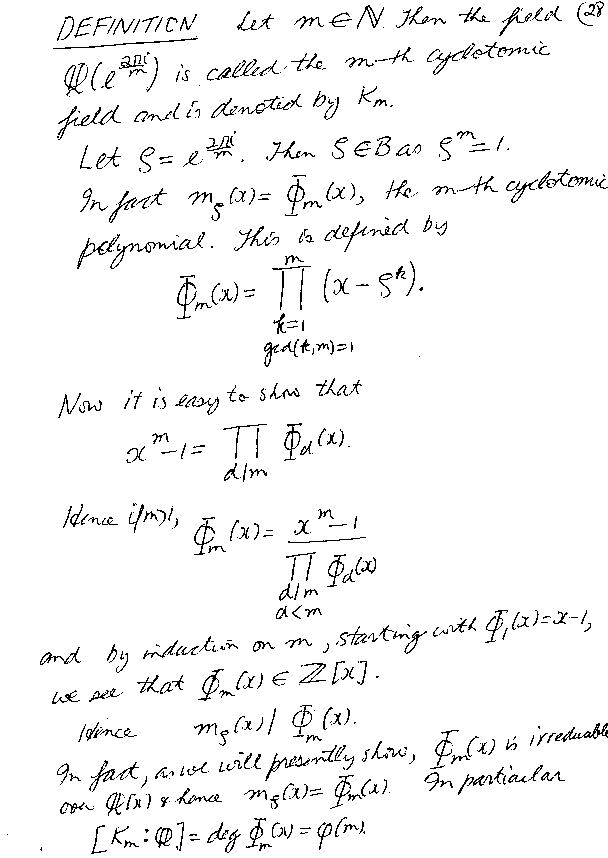 DEFINITION Let m ∈ ℕ. Then the field (28
ℚ(e^{2πi/m}) is called the m-th cyclotomic
field and is denoted by K_m.
Let ζ = e^{2πi/m}. Then ζ ∈ B as ζ^m = 1.
In fact m_ζ(x) = Φ_m(x), the m-th cyclotomic
polynomial. This is defined by
Φ_m(x) = ∏_{k=1}^{m} (x - ζ^k).
gcd(k,m)=1
Now it is easy to show that
x^m - 1 = ∏ Φ_d(x).
d|m
Hence if m>1, Φ_m(x) = x^m - 1
∏ Φ_d(x)
d|m
d<m
and by induction on m, starting with Φ_1(x)=x-1,
we see that Φ_m(x) ∈ ℤ[x].
Hence m_ζ(x) | Φ_m(x).
In fact, as we will presently show, Φ_m(x) is irreducible
over ℚ[x] & hence m_ζ(x) = Φ_m(x). In particular
[K_m : ℚ] = deg Φ_m(x) = φ(m).